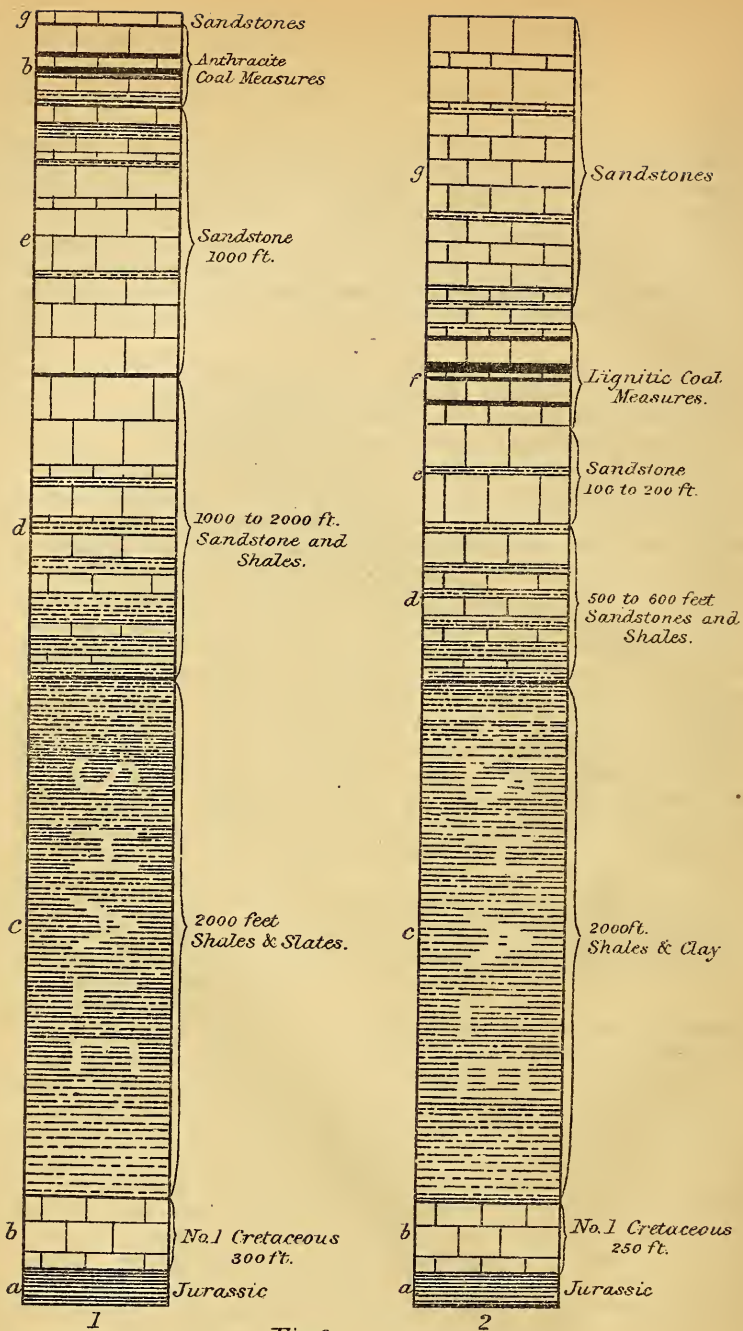 g Sandstones
b Anthracite
Coal Measures
e Sandstone
1000 ft.
d 1000 to 2000 ft.
Sandstone and
Shales.
SHALE
c 2000 feet
Shales & Slates.
b No.1 Cretaceous
300 ft.
a Jurassic
1
g Sandstones
f Lignitic Coal
Measures.
e Sandstone
100 to 200 ft.
d 500 to 600 feet
Sandstones and
Shales.
SHALE
c 2000ft.
Shales & Clay
b No.1 Cretaceous
250 ft.
a Jurassic
2